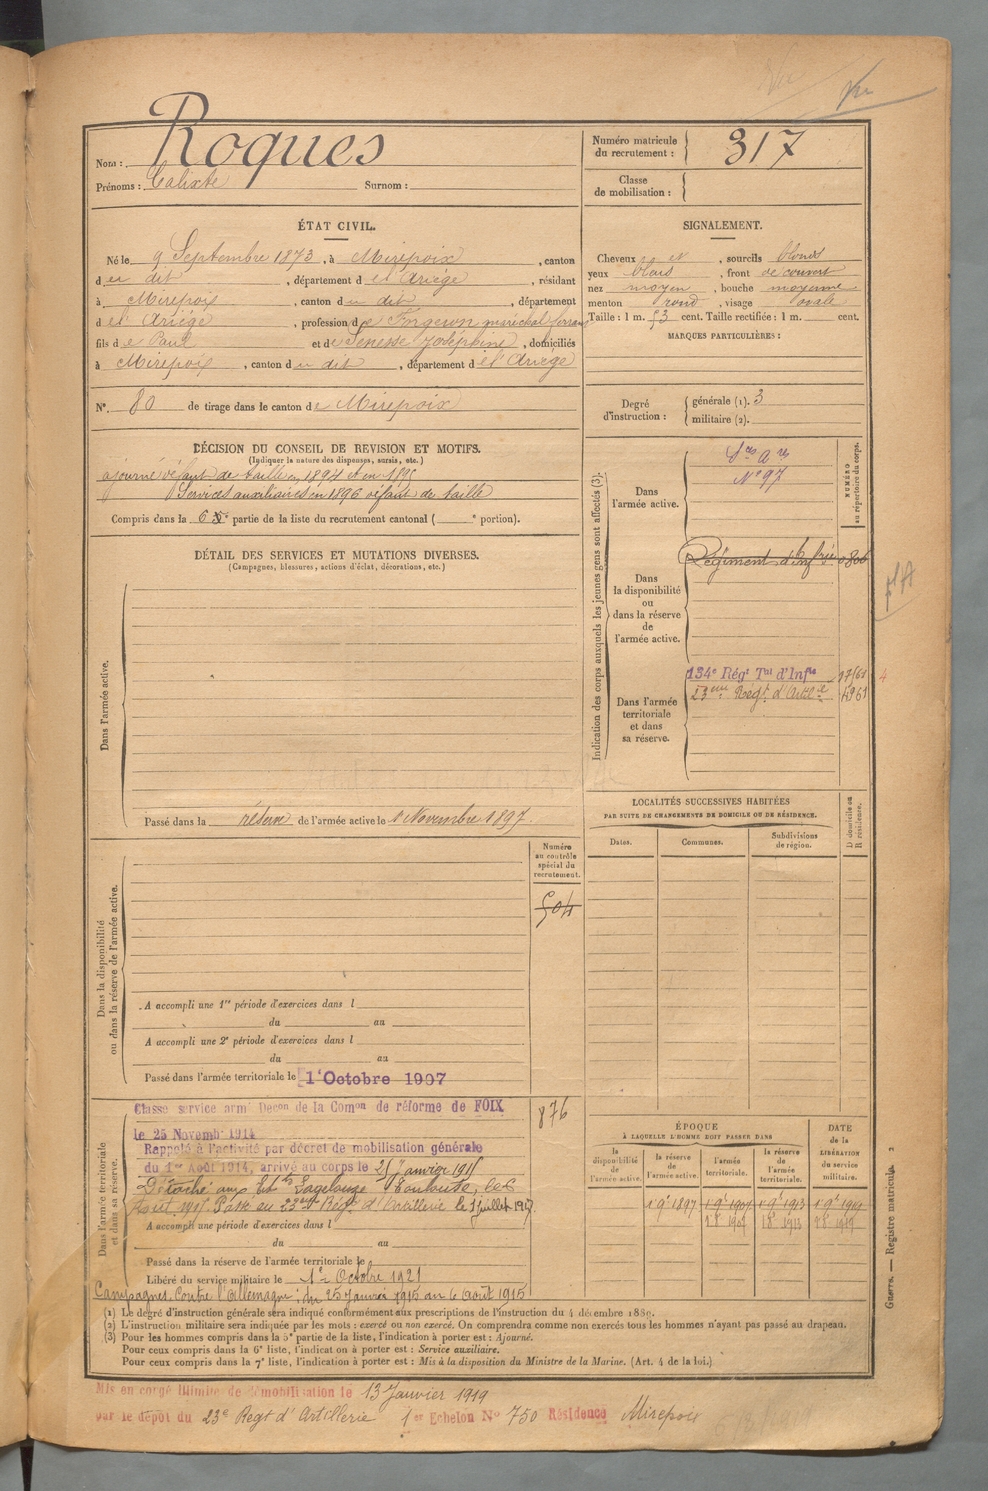 Nom : Roques
Prénoms : Calixte Surnom :
Numéro matricule du recrutement : 317
Classe de mobilisation :
ÉTAT CIVIL.
Né le 9 Septembre 1873, à Mirepoix, canton
du dit, département de l'Ariège, résidant
à Mirepoix, canton du dit, département
de l'Ariège, profession de Forgeron maréchal ferrant
fils de Paul et de Senesse Joséphine, domiciliés
à Mirepoix, canton du dit, département de l'Ariège
N° 80 de tirage dans le canton de Mirepoix
SIGNALEMENT.
Cheveux et, sourcils blonds
yeux bleus, front découvert
nez moyen, bouche moyenne
menton rond, visage ovale
Taille : 1 m. 53 cent. Taille rectifiée : 1 m. cent.
MARQUES PARTICULIÈRES :
Degré d'instruction : générale (1). 3
militaire (2).
DÉCISION DU CONSEIL DE REVISION ET MOTIFS.
(Indiquer la nature des dispenses, sursis, etc.)
ajourné défaut de taille en 1894 et en 1895
Services auxiliaires en 1896 défaut de taille
Compris dans la 6e partie de la liste du recrutement cantonal ( e portion).
DÉTAIL DES SERVICES ET MUTATIONS DIVERSES.
(Campagnes, blessures, actions d'éclat, décorations, etc.)
Dans l'armée active.
Passé dans la réserve de l'armée active le 1 Novembre 1897.
Indication des corps auxquels les jeunes gens sont affectés (3).
NUMÉRO au répertoire du corps.
Dans l'armée active.
N° 97
Dans la disponibilité ou dans la réserve de l'armée active.
Régiment d'Inf
Dans l'armée territoriale et dans sa réserve.
134e Régt Tal d'Infie
23eme Régt d'Artie
LOCALITÉS SUCCESSIVES HABITÉES
PAR SUITE DE CHANGEMENTS DE DOMICILE OU DE RÉSIDENCE.
Dates. Communes. Subdivisions de région. D domicile ou R résidence.
Numéro au contrôle spécial du recrutement.
504
Dans la disponibilité ou dans la réserve de l'armée active.
A accompli une 1re période d'exercices dans l
du au
A accompli une 2e période d'exercices dans l
du au
Passé dans l'armée territoriale le 1er Octobre 1907
Dans l'armée territoriale et dans sa réserve.
Classé service armé Decon de la Comon de réforme de FOIX
le 25 Novemb 1914
876
Rappelé à l'activité par décret de mobilisation générale
du 1er Août 1914, arrivé au corps le 25 Janvier 1915
Détaché aux Ets Lagelouze Toulouse, le 6
Août 1915. Passé au 23eme Régt d'Artillerie le 1 juillet 1917
A accompli une période d'exercices dans l
du au
Passé dans la réserve de l'armée territoriale le
Libéré du service militaire le 1er Octobre 1921
Campagnes. Contre l'Allemagne : du 25 Janvier 1915 au 6 août 1915
ÉPOQUE
À LAQUELLE L'HOMME DOIT PASSER DANS
la disponibilité de l'armée active.
la réserve de l'armée active.
l'armée territoriale.
la réserve de l'armée territoriale.
DATE de la LIBÉRATION du service militaire.
(1) Le degré d'instruction générale sera indiqué conformément aux prescriptions de l'instruction du 4 décembre 1889.
(2) L'instruction militaire sera indiquée par les mots : exercé ou non exercé. On comprendra comme non exercés tous les hommes n'ayant pas passé au drapeau.
(3) Pour les hommes compris dans la 5e partie de la liste, l'indication à porter est : Ajourné.
Pour ceux compris dans la 6e liste, l'indication à porter est : Service auxiliaire.
Pour ceux compris dans la 7e liste, l'indication à porter est : Mis à la disposition du Ministre de la Marine. (Art. 4 de la loi.)
Guerre. — Registre matricule. 2
Mis en congé illimité de démobilisation le 13 Janvier 1919
par le dépôt du 23e Regt d'Artillerie 1er Echelon N° 750 Résidence Mirepoix